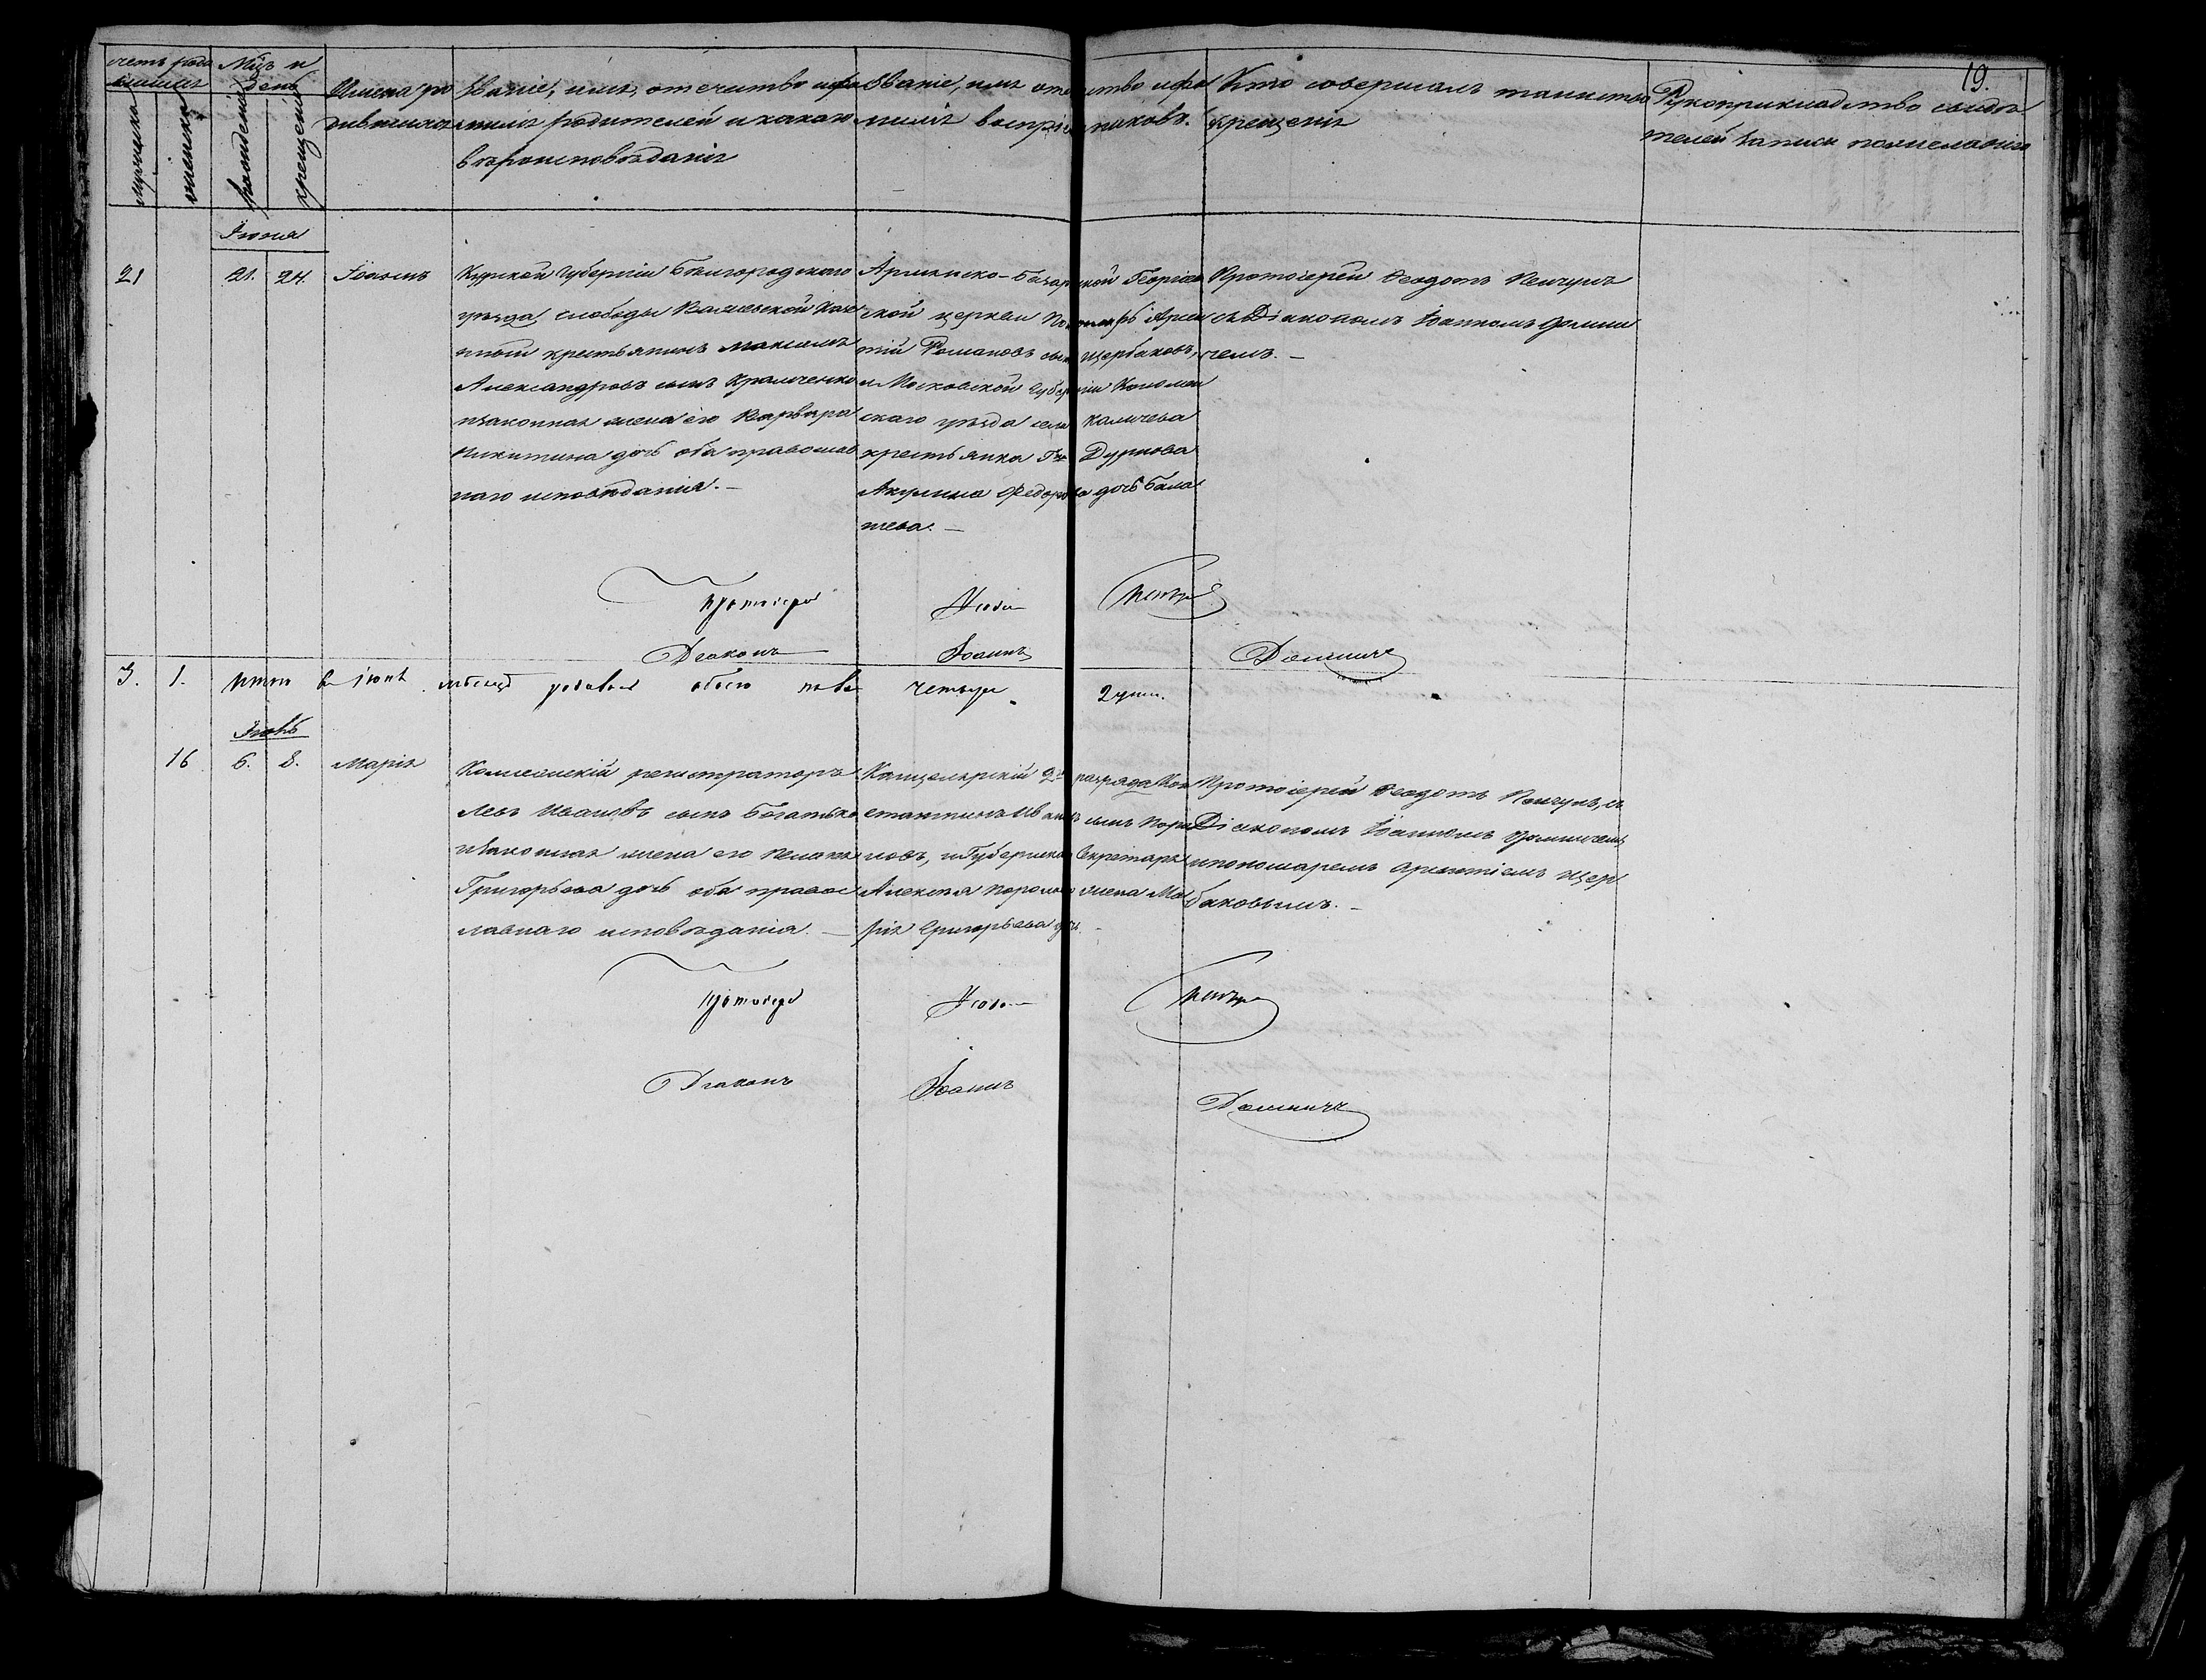 19.
счетъ роди
вшихся
мужеска
женска
Мцъ и
день
рожденія
крещенія
Имена ро
дившихся
Званіе, имя, отечество и фа
милія родителей и какаго
вѣроисповѣданія
Званіе, имя отечество и фа
милія воспріемниковъ.
Кто совершалъ таинство
крещенія
Рукоприкладство свидѣ
телей записи по желанію
Іюня
21
21.
24.
Іоаннъ
Курской губерніи Бѣлгородскаго
уѣзда, слободы
крестьянинъ Максимъ
Александровъ сынъ Кравченко
и законная жена его Варвара
Никитина дочь оба православ
наго исповѣданія. —
Армянско-Базарской Георгіев
ской церкви Пономарь Арсен
тій Романовъ сынъ Щербаковъ,
и Московской губерніи Коломен
скаго уѣзда села
крестьянка Гна Дурнова
Акулина Федорова дочь Бала
шева. —
Протоіерей Ѳеодотъ
съ Діакономъ Іоанномъ Доми
чемъ. —
Протоіерей
Діаконъ Іоаннъ Доминичъ
3.
1.
Итого въ іюнѣ мѣсяцѣ родилось обоего пола четыре души.
Іюль
16
6.
8.
Марія
Коллежскій регистраторъ
Левъ Ивановъ сынъ Богатько
и законная жена его Пелагія
Григорьева дочь оба правос
лавнаго исповѣданія. —
Канцелярскій 2го разряда Кон
стантинъ Ивановъ сынъ
новъ, и Губернскаго Секретаря
Алексѣя жена Ма
рія Григорьева дочь. —
Протоіерей Ѳеодотъ съ
Діакономъ Іоанномъ Доминичемъ
и пономаремъ Арсентіемъ Щер
баковымъ. —
Протоіерей
Діаконъ Іоаннъ
Доминичъ